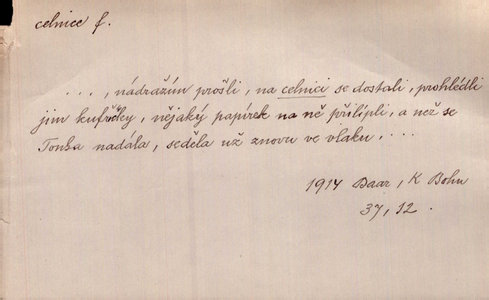 celnice f.
..., nádražím prošli, na celnici se dostali, prohlédli
jim kufříky, nějaký papírek na ně přilípli, a než se
Tonka nadála, seděla už znovu ve vlaku, ...
1917 Baar, K Bohu
37, 12.